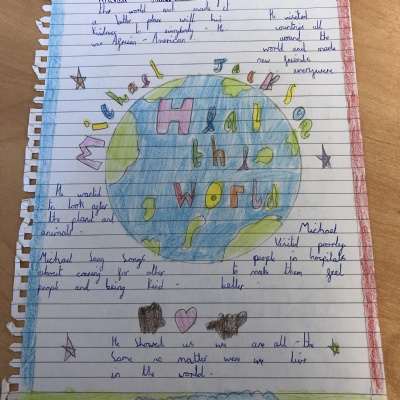 the world and made it
a better place with his
Kidness to everybody - He
was African - American!
He visited
countrys all
around the
world and made
new friends
everywere
Michael Jackson
Heal
the
World
He wanted
to look after
the planet and
animals -
Michael
Visited poorly
people in hospitals
to make them feel
better -
Michael Sang Songs
about caring for other
people and being kind -
He showed us we are all - the
Same no matter were we live
in the world -